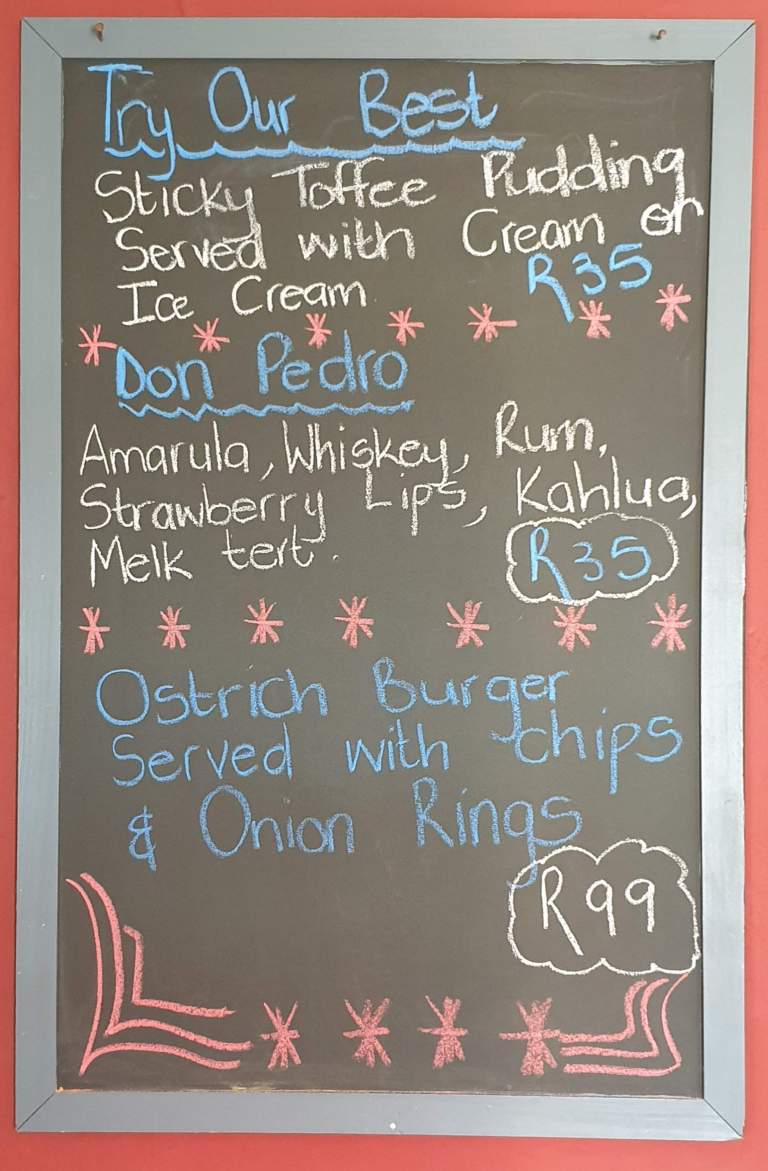 Try Our Best
Sticky Toffee Pudding
Served with Cream or
Ice Cream R35
Don Pedro
Amarula, Whiskey, Rum,
Strawberry Lips, Kahlua,
Melk tert.
R35
Ostrich Burger
Served with chips
& Onion Rings
R99